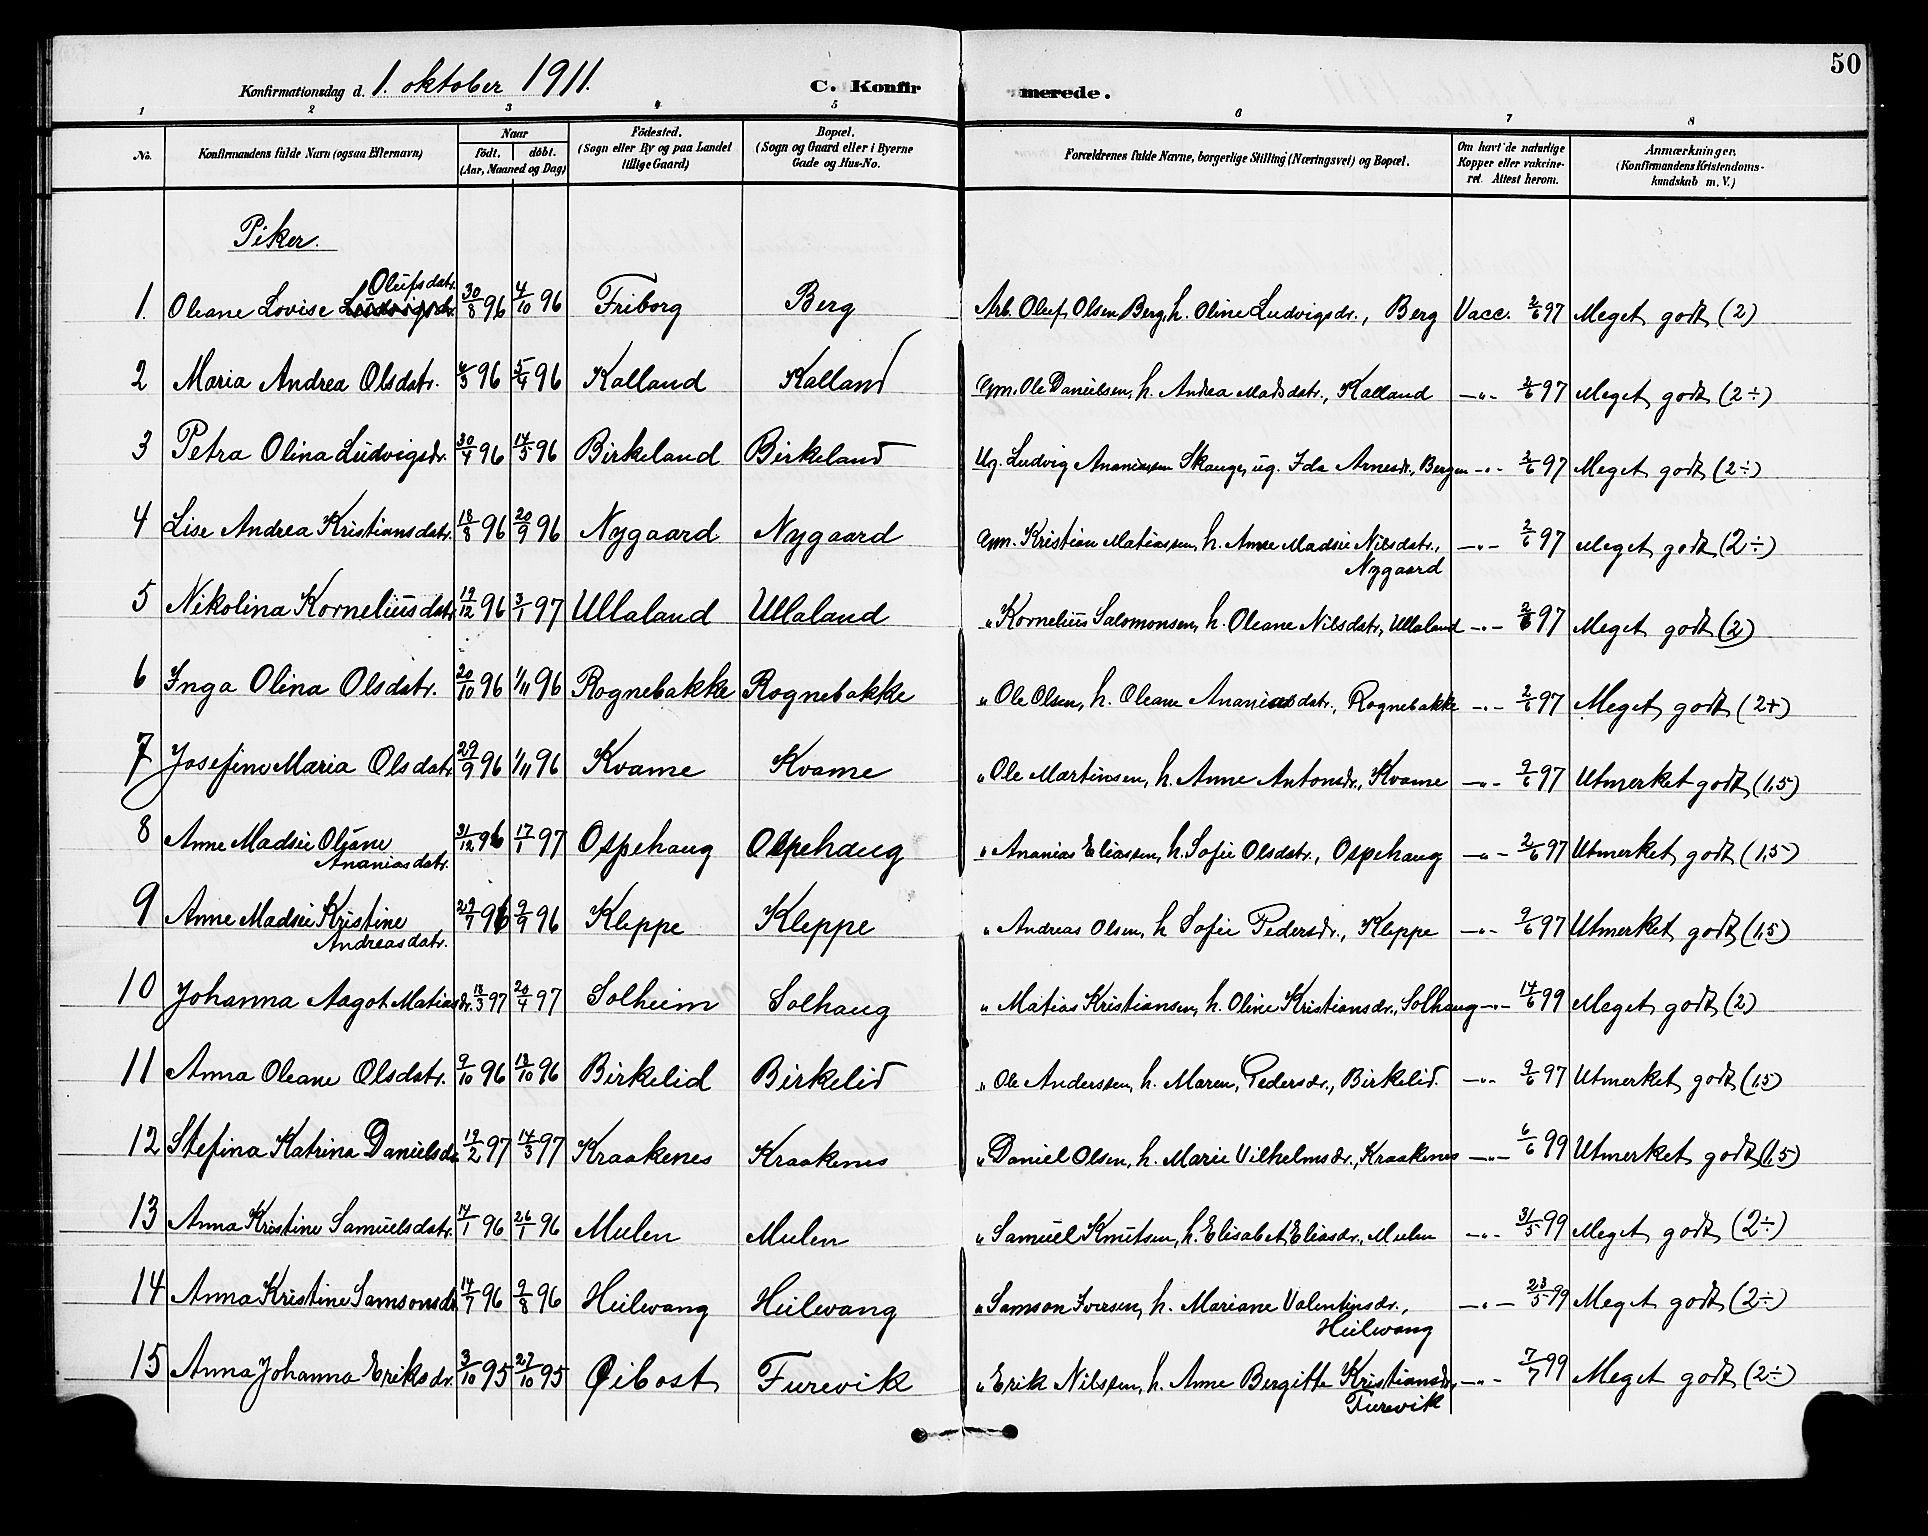 50
Konfirmationsdag d. 1. oktober 1911. C. Konfirmerede.
1 2 3 4 5 6 7 8
No. Konfirmandens fulde Navn (ogsaa Efternavn) Naar født. døbt. (Aar, Maaned og Dag) Fødested. (Sogn eller By og paa Landet tillige Gaard) Bopæl. (Sogn og Gaard eller i Byerne Gade og Hus-No. Forældrenes fulde Navne, borgerlige Stilling (Næringsvei) og Bopæl. Om havt de naturlige Kopper eller vakcineret. Attest herom. Anmærkninger. (Konfirmandens Kristendomskundskab m. V.)
Piker.
Olufsdatr.
1. Oleane Lovise Ludvigsdr. 30/8 96 4/10 96 Friborg Berg Arb. Oluf Olsen Berg, h. Oline Ludvigsdr., Berg Vacc. 2/6 97 Meget godt (2)
2 Maria Andrea Olsdatr. 4/3 96 5/4 96 Kalland Kalland Gm. Ole Danielsen, h. Andrea Madsdatr., Kalland —"— 2/6 97 Meget godt (2÷)
3 Petra Olina Ludvigsdr. 30/4 96 14/5 96 Birkeland Birkeland Ug. Ludvig Ananiassen Skauge, ug. Ida Arnesdr., Bergen —"— 2/6 97 Meget godt (2÷)
4 Lise Andrea Kristiansdatr. 18/8 96 20/9 96 Nygaard Nygaard Gm. Kristian Matiassen, h. Anne Madsie Nilsdatr., —"— 2/6 97 Meget godt (2÷)
Nygaard
5 Nikolina Korneliusdatr. 19/12 96 3/1 97 Ullaland Ullaland " Kornelius Salomonsen, h. Oleane Nilsdatr., Ullaland —"— 2/6 97 Meget godt (2)
6 Inga Olina Olsdatr. 20/10 96 1/11 96 Rognebakke Rognebakke " Ole Olsen, h. Oleane Ananiasdatr., Rognebakke —"— 2/6 97 Meget godt (2+)
7 Josefine Maria Olsdatr. 29/9 96 1/11 96 Kvame Kvame " Ole Martinsen, h. Anne Antonsdr., Kvame —"— 2/6 97 Utmerket godt (1,5)
8 Anne Madsie Oleane 31/12 96 17/1 97 Ospehaug Ospehaug " Ananias Eliassen, h. Sofie Olsdatr., Ospehaug —"— 2/6 97 Utmerket godt (1,5)
Ananiasdatr.
9 Anne Madsie Kristine 29/7 96 2/9 96 Kleppe Kleppe " Andreas Olsen, h. Sofie Pedersdr., Kleppe —"— 2/6 97 Utmerket godt (1,5)
Andreasdatr.
10 Johanna Aagot Matiasdr. 18/3 97 20/4 97 Solheim Solhaug " Matias Kristiansen, h. Oline Kristiansdr., Solhaug —"— 14/6 99 Meget godt (2)
11 Anna Oleane Olsdatr. 9/10 96 18/10 96 Birkelid Birkelid " Ole Anderssen, h. Maren Pedersdr., Birkelid. —"— 2/6 97 Utmerket godt (1,5)
12 Stefina Katrina Danielsdr. 19/2 97 14/3 97 Kraakenes Kraakenes " Daniel Olsen, h. Marie Vilhelmsdr., Kraakenes —"— 6/6 99 Utmerket godt (1,5)
13 Anna Kristine Samuelsdatr. 14/1 96 26/1 96 Mulen Mulen " Samuel Knutsen, h. Elisabet Eliasdr., Mulen —"— 31/5 99 Meget godt (2÷)
14 Anna Kristine Samsonsdr. 14/7 96 2/8 96 Heilevang Heilevang " Samson Iversen, h. Mariane Valentinsdr., —"— 23/5 99 Meget godt (2÷)
Heilevang
15 Anna Johanna Eriksdr. 3/10 95 27/10 95 Øibost Furevik " Erik Nilssen, h. Anne Bergitte Kristiansdr., —"— 7/7 99 Meget godt (2÷)
Furevik